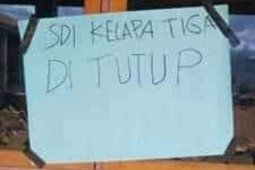 SDI KELAPA TIGA
DI TUTUP